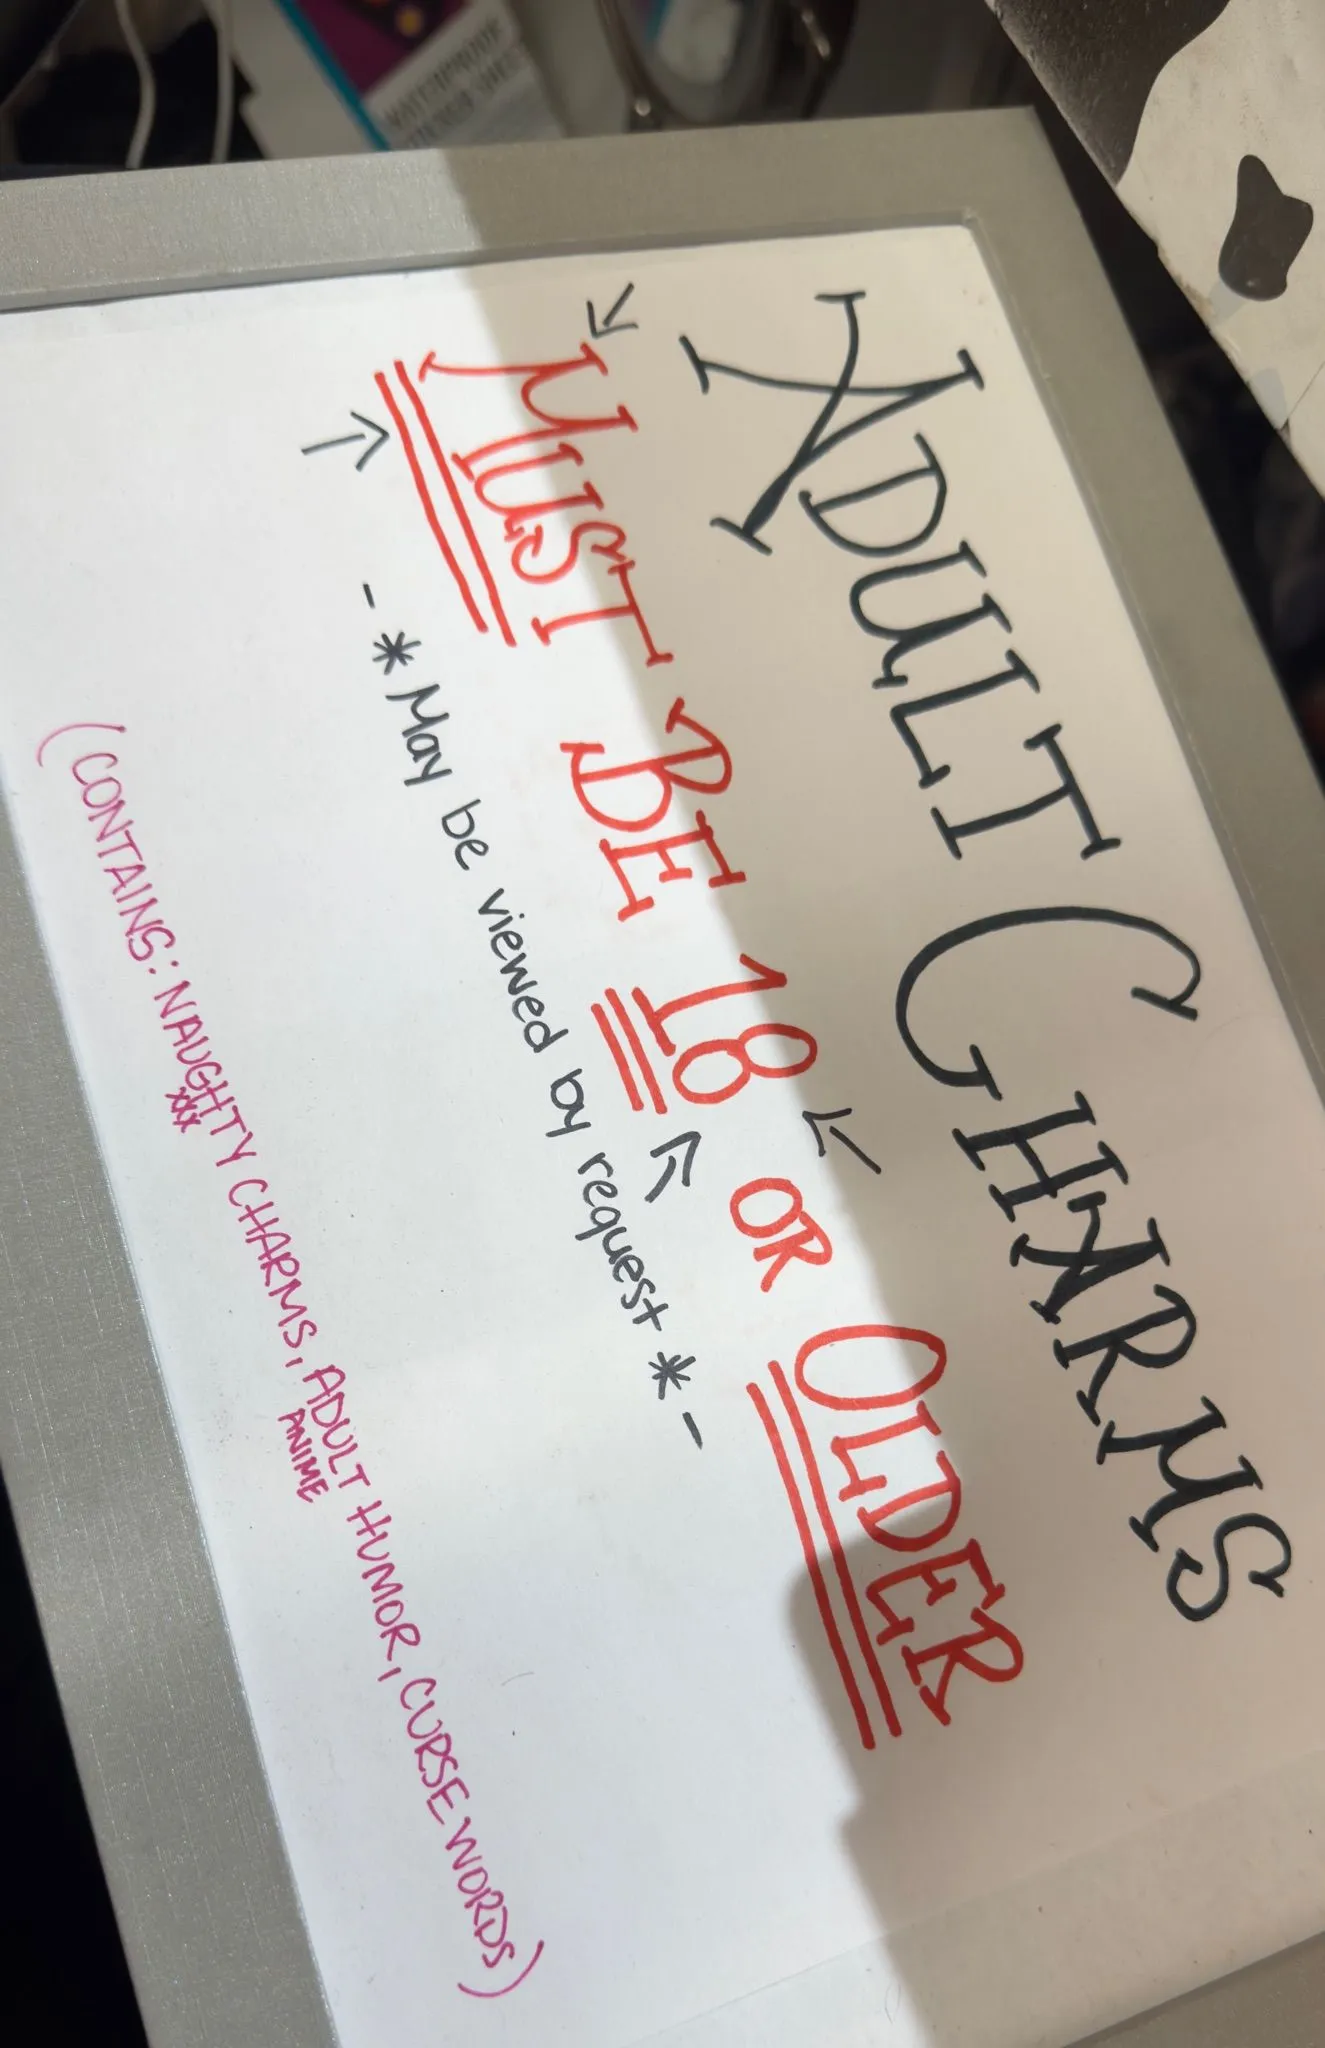 WATERPROOF
STICKER SHEET
ADULT CHARMS
MUST BE 18 OR OLDER
- * May be viewed by request * -
(CONTAINS: NAUGHTY CHARMS, ADULT HUMOR, CURSE WORDS)
xxx
ANIME